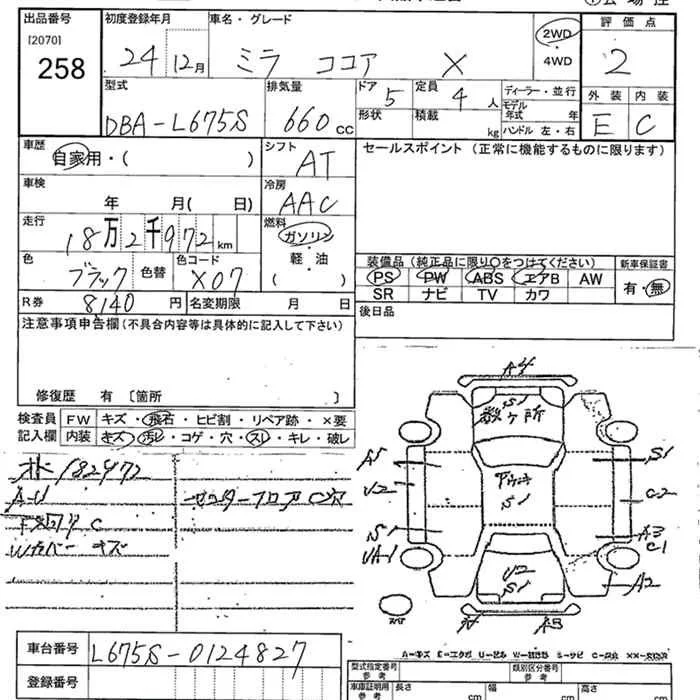 出品番号
[2070]
258
初度登録年月
24 12月
車名・グレード
ミラ ココア X
2WD
・
4WD
評価点
2
外装 内装
E C
型式
DBA-L675S
排気量
660 cc
ドア 5
形状
定員 4 人
積載 kg
ディーラー・並行
モデル
年式 年
ハンドル 左・右
車歴
自家用・( )
シフト
AT
セールスポイント (正常に機能するものに限ります)
車検
年 月( 日)
冷房
AAC
走行
18万2千972km
燃料
ガソリン
・
軽・油
( )
色
ブラック
色替
色コード
X07
装備品(純正品に限り○をつけてください)
PS PW ABS エアB AW
SR ナビ TV カワ
新車保証書
有・無
R券 8140 円
名変期限 月 日
後日品
注意事項申告欄(不具合内容等は具体的に記入して下さい)
修復歴 有 〔箇所 〕
検査員
記入欄
FW キズ・飛石・ヒビ割・リペア跡・×要
内装 キズ・汚レ・コゲ・穴・スレ・キレ・破レ
182972
A-U
センターフロアC穴
下廻りサC
Wカバーキズ
A4
S1
数ヶ所
A1
S1
U2
C2
S1
S1
A3
C1
UA-1
U2
S1
A2
A3
A-キズ E-エクボ U-ヒル W-補修跡 S-サビ C-腐食 XX-交換済
車台番号 L675S-0124827
登録番号
型式指定番号
参考
類別区分番号
参考
車庫証明用
参考
長さ cm
幅 cm
高さ cm